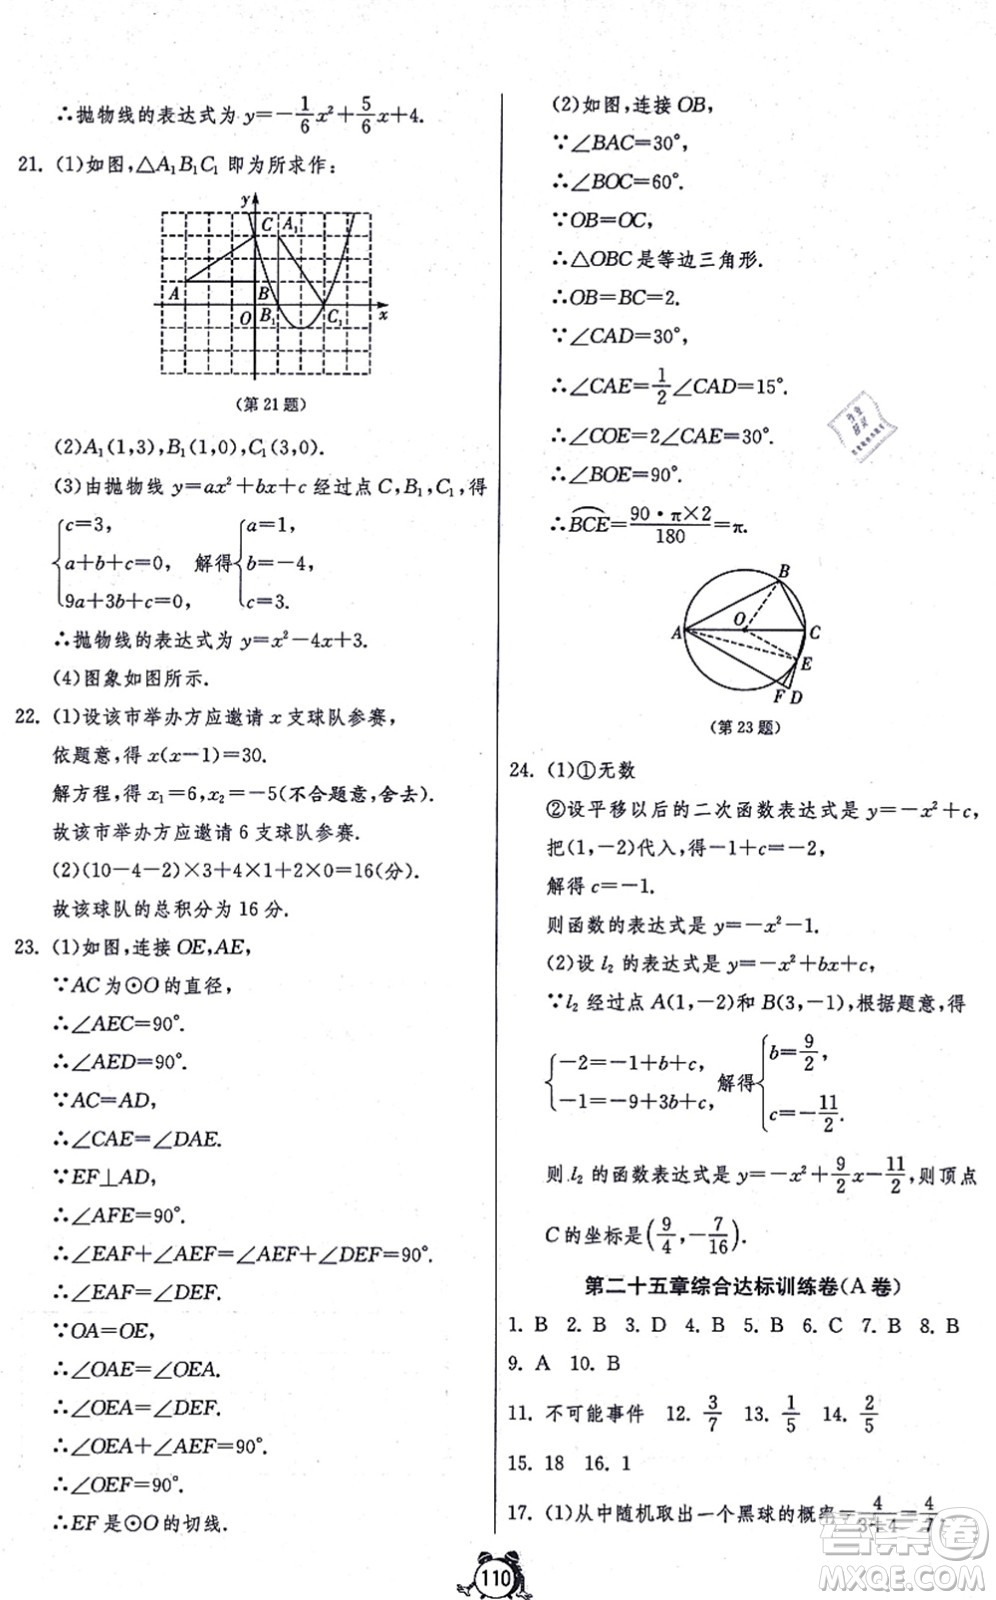 ∴抛物线的表达式为 y=-1/6x²+5/6x+4.
21. (1)如图,△A₁B₁C₁ 即为所求作:
y
C A₁
A B
O B₁ C₁ x
(第21题)
(2)A₁(1,3),B₁(1,0),C₁(3,0).
(3)由抛物线 y=ax²+bx+c 经过点 C,B₁,C₁,得
{c=3, a+b+c=0, 9a+3b+c=0, 解得{a=1, b=-4, c=3.
∴抛物线的表达式为 y=x²-4x+3.
(4)图象如图所示.
22. (1)设该市举办方应邀请 x 支球队参赛,
依题意,得 x(x-1)=30.
解方程,得 x₁=6,x₂=-5(不合题意,舍去).
故该市举办方应邀请 6 支球队参赛.
(2)(10-4-2)×3+4×1+2×0=16(分).
故该球队的总积分为 16 分.
23. (1)如图,连接 OE,AE,
∵AC 为⊙O 的直径,
∴∠AEC=90°.
∴∠AED=90°.
∵AC=AD,
∴∠CAE=∠DAE.
∵EF⊥AD,
∴∠AFE=90°.
∴∠EAF+∠AEF=∠AEF+∠DEF=90°.
∴∠EAF=∠DEF.
∵OA=OE,
∴∠OAE=∠OEA.
∴∠OEA=∠DEF.
∴∠OEA+∠AEF=90°.
∴∠OEF=90°.
∴EF 是⊙O 的切线.
(2)如图,连接 OB,
∵∠BAC=30°,
∴∠BOC=60°.
∵OB=OC,
∴△OBC 是等边三角形.
∴OB=BC=2.
∵∠CAD=30°,
∴∠CAE=1/2∠CAD=15°.
∴∠COE=2∠CAE=30°.
∴∠BOE=90°.
∴⌒BCE=90·π×2/180=π.
B
A O C
E
F D
(第23题)
24. (1)①无数
②设平移以后的二次函数表达式是 y=-x²+c,
把(1,-2)代入,得-1+c=-2,
解得 c=-1.
则函数的表达式是 y=-x²-1.
(2)设 l₂ 的表达式是 y=-x²+bx+c,
∵l₂ 经过点 A(1,-2)和 B(3,-1),根据题意,得
{-2=-1+b+c, -1=-9+3b+c, 解得{b=9/2, c=-11/2.
则 l₂ 的函数表达式是 y=-x²+9/2x-11/2,则顶点
C 的坐标是(9/4,-7/16).
第二十五章综合达标训练卷(A 卷)
1. B 2. B 3. D 4. B 5. B 6. C 7. B 8. B
9. A 10. B
11. 不可能事件 12. 3/7 13. 1/5 14. 2/5
15. 18 16. 1
17. (1)从中随机取出一个黑球的概率=4/3+4=4/7,
110
答案圈
MXQE.COM